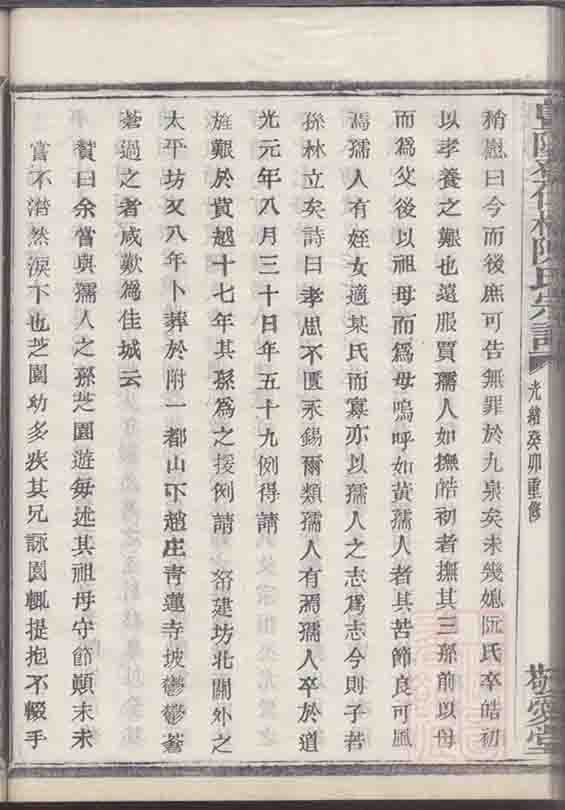 稍慰曰今而後庶可告無罪於九泉矣未幾媳阮氏卒皓初
以孝養之艱也遠服賈孺人如撫皓初者撫其三孫前以母
而為父後以祖母而為母嗚呼如黃孺人者其苦節良可風
焉孺人有姪女適某氏而寡亦以孺人之志為志今則子若
孫林立矣詩曰孝思不匱永錫爾類孺人有焉孺人卒於道
光元年八月三十日年五十九例得請
旌艱於貲越十七年其孫為之援例請 帑建坊北關外之
太平坊又八年卜葬於附一都山下趙庄青蓮寺坡鬱鬱蒼
蒼過之者咸歎為佳城云
贊曰余嘗與孺人之孫芝園遊每述其祖母守節顛末未
嘗不潸然淚下也芝園幼多疾其兄詠園輒提抱不輟手
陳氏宗譜
光緒癸卯重修
敬愛堂